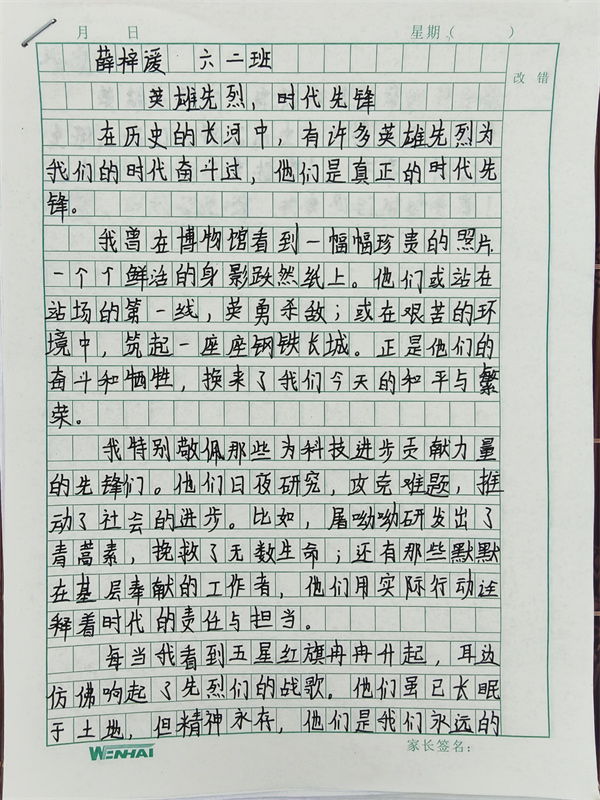 月 日 星期（ ）
薛梓谖 六二班
改 错
英雄先烈，时代先锋
在历史的长河中，有许多英雄先烈为
我们的时代奋斗过，他们是真正的时代先
锋。
我曾在博物馆看到一幅幅珍贵的照片，
一个个鲜活的身影跃然纸上。他们或站在
站场的第一线，英勇杀敌；或在艰苦的环
境中，筑起一座座钢铁长城。正是他们的
奋斗和牺牲，换来了我们今天的和平与繁
荣。
我特别敬佩那些为科技进步贡献力量
的先锋们。他们日夜研究，攻克难题，推
动了社会的进步。比如，屠呦呦研发出了
青蒿素，挽救了无数生命；还有那些默默
在基层奉献的工作者，他们用实际行动诠
释着时代的责任与担当。
每当我看到五星红旗冉冉升起，耳边
仿佛响起了先烈们的战歌。他们虽已长眠
于土地，但精神永存，他们是我们永远的
WENHAI 家长签名：